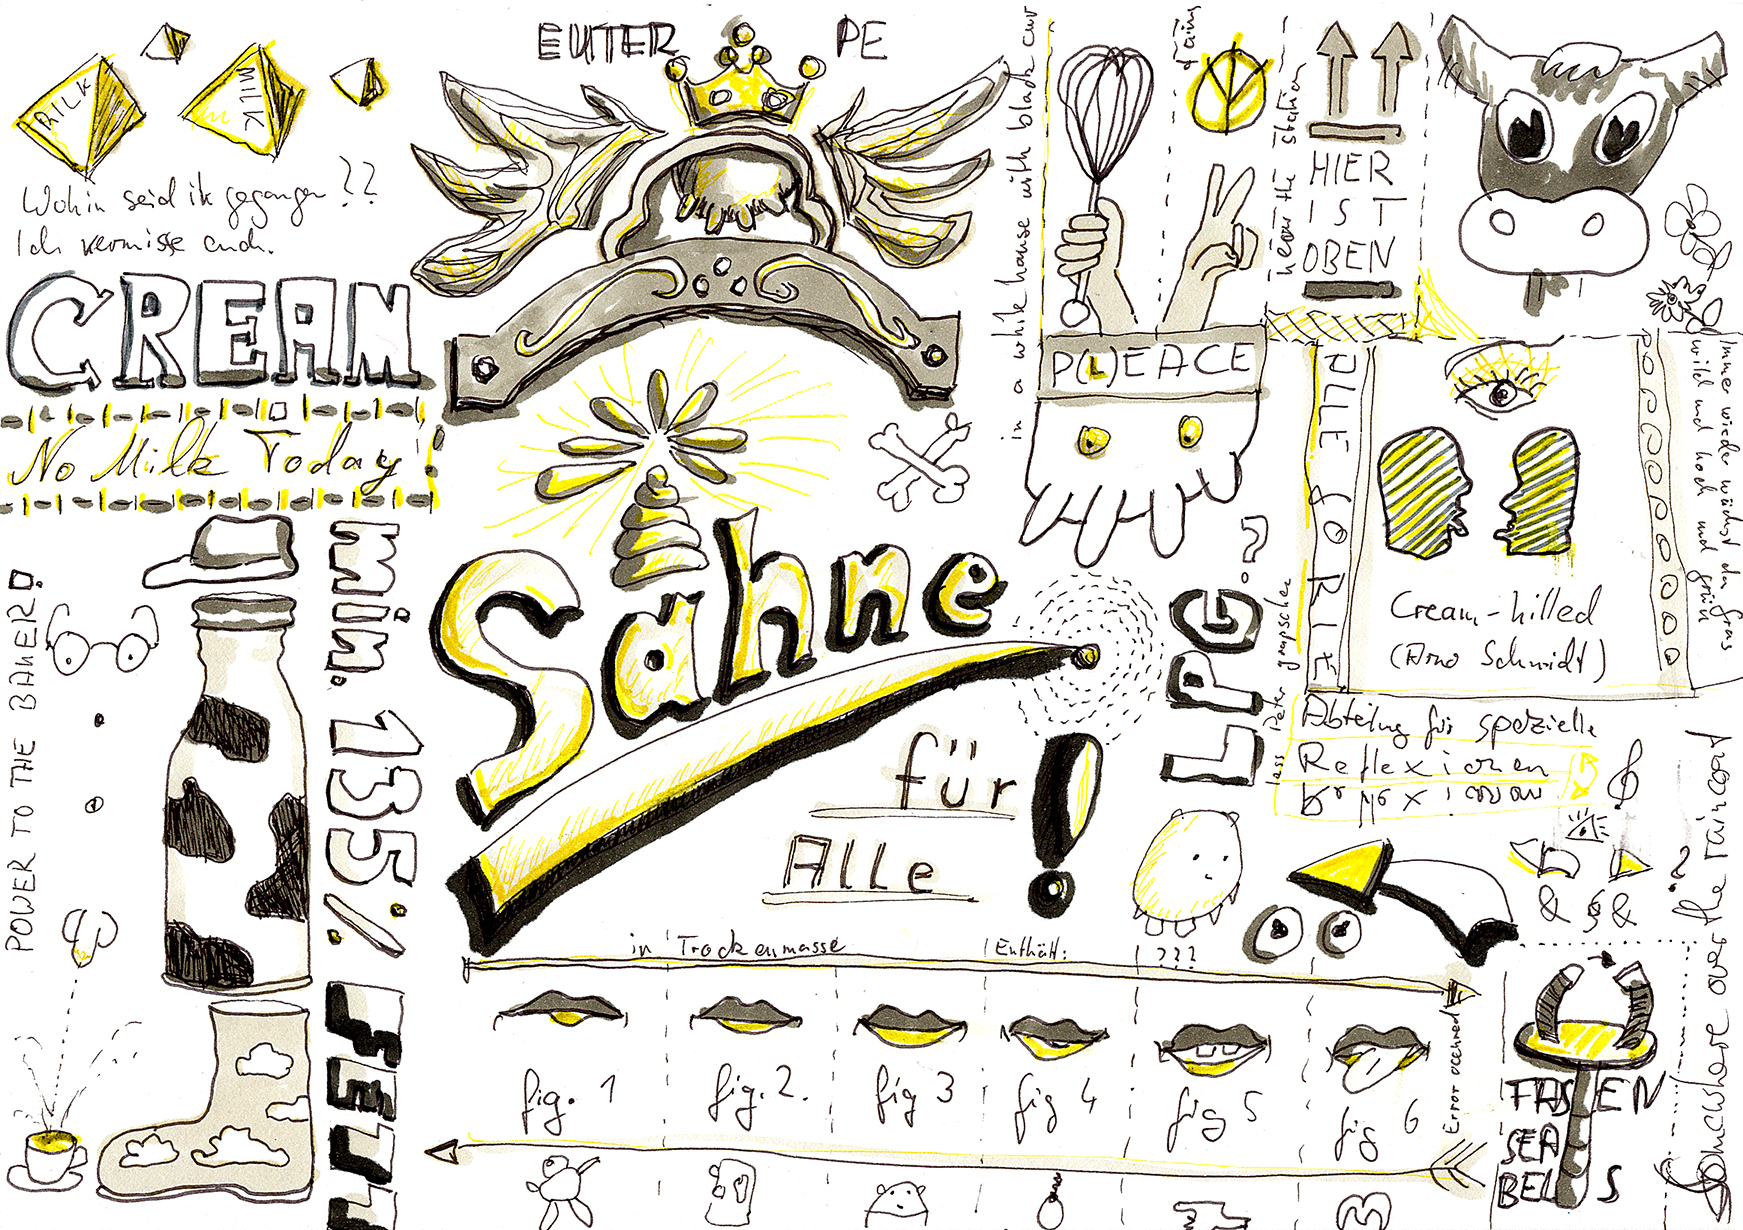 EUTER PE
MILK
MILK
Wohin seid ihr gegangen ??
Ich vermisse euch.
CREAM
No Milk Today
POWER TO THE BAKER!
min. 135%
FETT
Sahne
für
Alle
!
in a white house with black cur
tains
near the station
HIER
IST
OBEN
P(L)EACE
LPG
lass Peter grapschen
PLLE
Cream-hilled
(Arno Schmidt)
Immer wieder wächst das Gras
wild und hoch und grün
Abteilung für spezielle
Reflexionen
in Trockenmasse
Enthält:
???
fig. 1
fig. 2.
fig 3
fig 4
fig 5
fig 6
Error occurred
& & &
Somewhere over the raincoat
FASTEN
SEA
BELTS